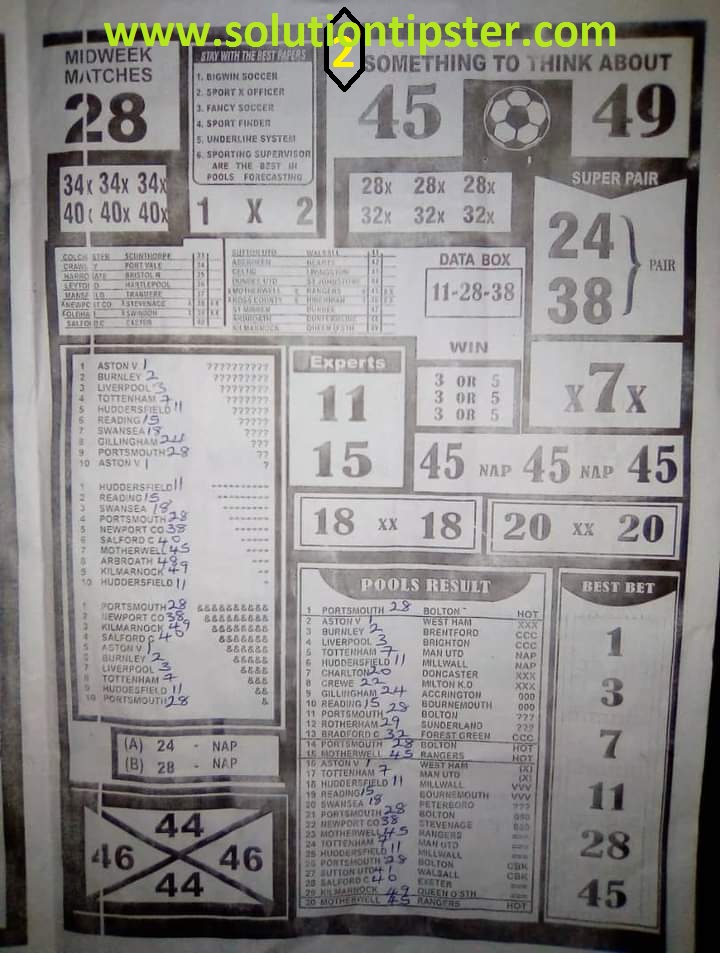 www.solutiontipster.com
2
MIDWEEK
MATCHES
28
STAY WITH THE BEST PAPERS
1. BIGWIN SOCCER
2. SPORT X OFFICER
3. FANCY SOCCER
4. SPORT FINDER
5. UNDERLINE SYSTEM
6. SPORTING SUPERVISOR
ARE THE BEST IN
POOLS FORECASTING
1 X 2
SOMETHING TO THINK ABOUT
45 49
34x 34x 34x
40x 40x 40x
28x 28x 28x
32x 32x 32x
SUPER PAIR
24
38
PAIR
COLCHESTER SCUNTHORPE 33
CRAWLEY PORT VALE 34
HARROGATE BRISTOL R 35
LEYTON HARTLEPOOL 36
MANSFIELD TRANMERE 37
NEWPORT CO STEVENAGE 38 XX
OLDHAM SWINDON 39 XX
SALFORD C EXETER 40
SUTTON UTD WALSALL 41
ABERDEEN HEARTS 42
CELTIC LIVINGSTON 43
DUNDEE UTD ST JOHNSTONE 44
MOTHERWELL RANGERS 45 XX
ROSS COUNTY HIBERNIAN 46 XX
ST MIRREN DUNDEE 47
ARBROATH DUNFERMLINE 48
KILMARNOCK QUEEN O'STH 49
DATA BOX
11-28-38
WIN
3 OR 5
3 OR 5
3 OR 5
x7x
Experts
11
15
45 NAP 45 NAP 45
18 xx 18
20 xx 20
1 ASTON V 1 ??????????
2 BURNLEY 2 ?????????
3 LIVERPOOL 3 ????????
4 TOTTENHAM 7 ???????
5 HUDDERSFIELD 11 ??????
6 READING 15 ?????
7 SWANSEA 18 ????
8 GILLINGHAM 24 ???
9 PORTSMOUTH 28 ??
10 ASTON V 1 ?
1 HUDDERSFIELD 11 ----------
2 READING 15 ---------
3 SWANSEA 18 --------
4 PORTSMOUTH 28 -------
5 NEWPORT CO 38 ------
6 SALFORD C 40 -----
7 MOTHERWELL 45 ----
8 ARBROATH 48 ---
9 KILMARNOCK 49 --
10 HUDDERSFIELD 11 -
1 PORTSMOUTH 28 &&&&&&&&&&
2 NEWPORT CO 38 &&&&&&&&&
3 KILMARNOCK 49 &&&&&&&&
4 SALFORD C 40 &&&&&&&
5 ASTON V 1 &&&&&&
6 BURNLEY 2 &&&&&
7 LIVERPOOL 3 &&&&
8 TOTTENHAM 7 &&&
9 HUDDESFIELD 11 &&
10 PORTSMOUTH 28 &
(A) 24 - NAP
(B) 28 - NAP
44
46 46
44
POOLS RESULT
1 PORTSMOUTH 28 BOLTON HOT
2 ASTON V 1 WEST HAM XXX
3 BURNLEY 2 BRENTFORD CCC
4 LIVERPOOL 3 BRIGHTON CCC
5 TOTTENHAM 7 MAN UTD NAP
6 HUDDERSFIELD 11 MILLWALL NAP
7 CHARLTON 20 DONCASTER XXX
8 CREWE 22 MILTON K.O XXX
9 GILLINGHAM 24 ACCRINGTON 000
10 READING 15 BOURNEMOUTH 000
11 PORTSMOUTH 28 BOLTON ???
12 ROTHERHAM 29 SUNDERLAND ???
13 BRADFORD C 32 FOREST GREEN CCC
14 PORTSMOUTH 28 BOLTON HOT
15 MOTHERWELL 45 RANGERS HOT
16 ASTON V 1 WEST HAM (X)
17 TOTTENHAM 7 MAN UTD (X)
18 HUDDERSFIELD 11 MILLWALL VVV
19 READING 15 BOURNEMOUTH VVV
20 SWANSEA 18 PETERBORO ???
21 PORTSMOUTH 28 BOLTON
22 NEWPORT CO 38 STEVENAGE
23 MOTHERWELL 45 RANGERS ===
24 TOTTENHAM 7 MAN UTD ===
25 HUDDERSFIELD 11 MILLWALL ===
26 PORTSMOUTH 28 BOLTON CBK
27 SUTTON UTD 41 WALSALL CBK
28 SALFORD C 40 EXETER ===
29 KILMARNOCK 49 QUEEN O'STH ===
30 MOTHERWELL 45 RANGERS HOT
BEST BET
1
3
7
11
28
45